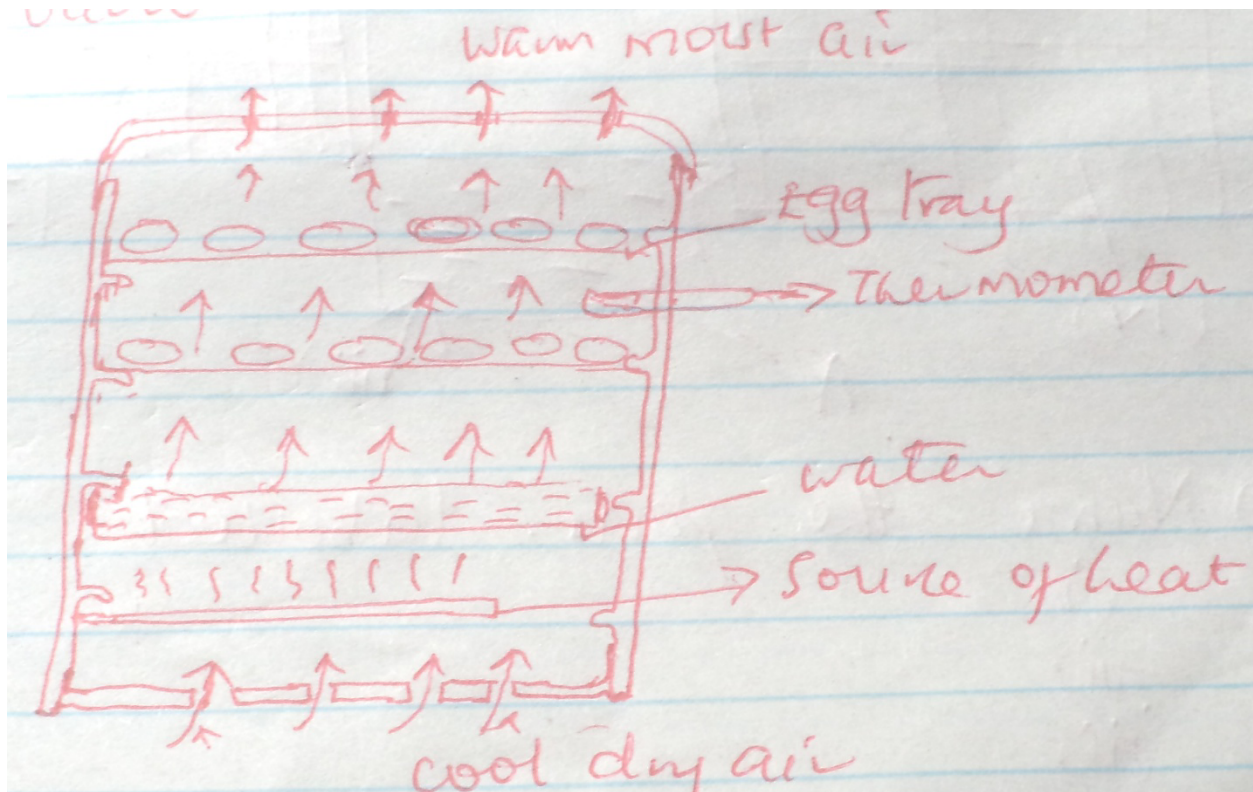 warm moist air
Egg Tray
Thermometer
water
Source of heat
cool dry air